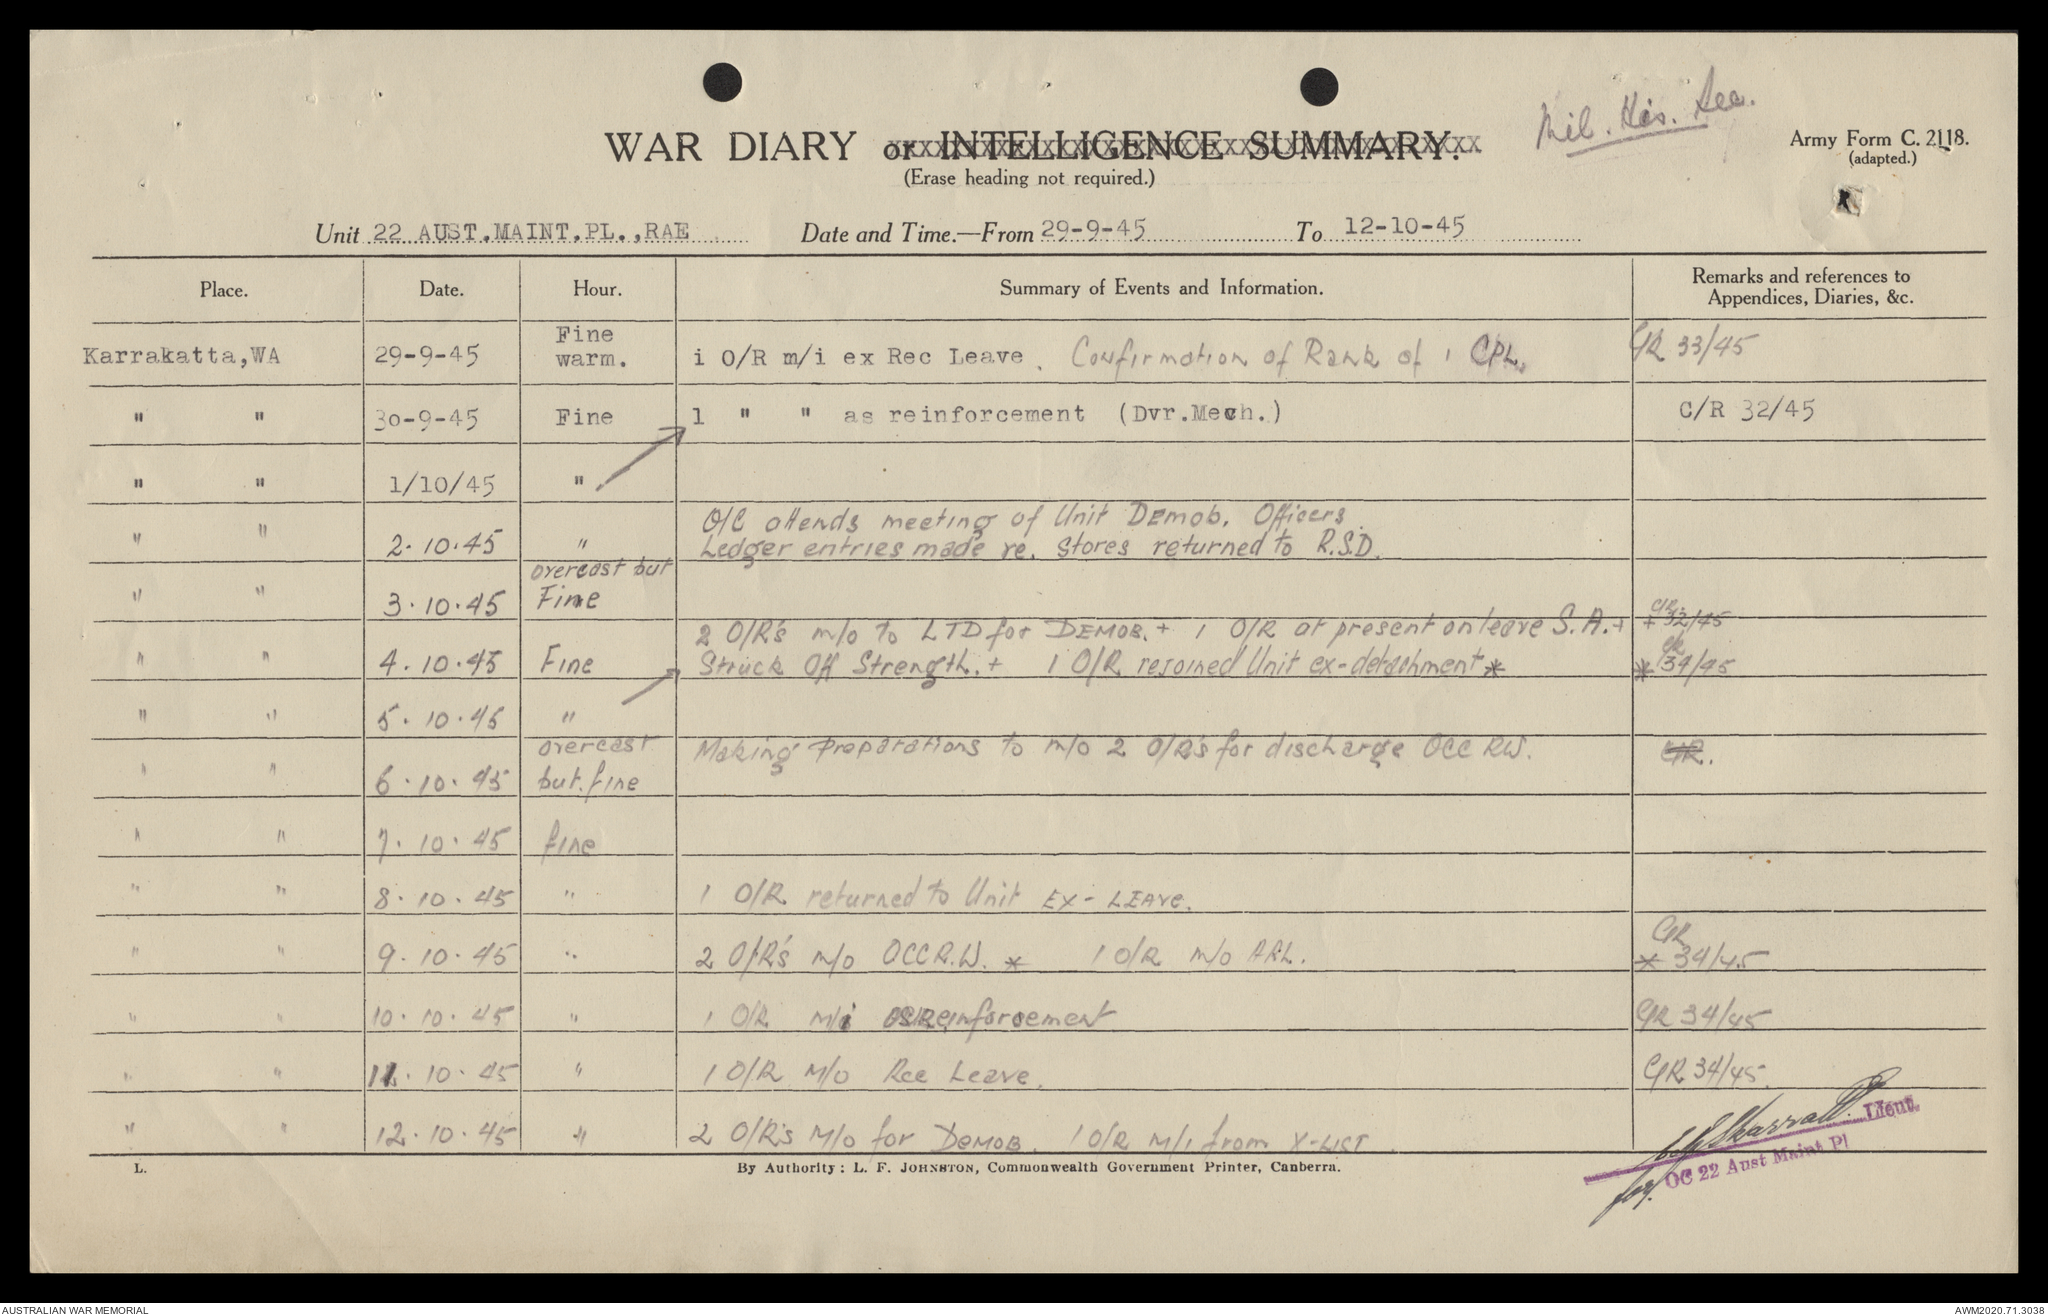 Mil. His. Sec.
WAR DIARY or INTELLIGENCE SUMMARY.
(Erase heading not required.)
Army Form C. 2118.
(adapted.)
Unit 22 AUST.MAINT.PL.,RAE Date and Time.—From 29-9-45 To 12-10-45
Place. Date. Hour. Summary of Events and Information. Remarks and references to Appendices, Diaries, &c.
Karrakatta,WA 29-9-45 Fine warm. i O/R m/i ex Rec Leave. Confirmation of Rank of 1 CPL. C/R 33/45
" " 30-9-45 Fine 1 " " as reinforcement (Dvr.Mech.) C/R 32/45
" " 1/10/45 "
" " 2.10.45 " O/C attends meeting of Unit Demob. Officers.
Ledger entries made re. Stores returned to R.S.D.
" " 3.10.45 overcast but Fine
" " 4.10.45 Fine 2 O/R's m/o to LTD for DEMOB. + 1 O/R at present on leave S.A. + + C/R 32/45
Struck Off Strength. + 1 O/R rejoined Unit ex-detachment * * C/R 34/45
" " 5.10.45 "
" " 6.10.45 overcast but fine Making Preparations to m/o 2 O/R's for discharge OCC RW. C/R.
" " 7.10.45 fine
" " 8.10.45 " 1 O/R returned to Unit EX-LEAVE.
" " 9.10.45 " 2 O/R's m/o OCC R.W. * 1 O/R m/o A&L. C/R * 34/45
" " 10.10.45 " 1 O/R m/i as Reinforcement C/R 34/45
" " 11.10.45 " 1 O/R M/o Rec Leave. C/R 34/45.
" " 12.10.45 " 2 O/R's M/o for DEMOB. 1 O/R M/i from X-LIST
Lieut.
for OC 22 Aust Maint Pl
L. By Authority: L. F. JOHNSTON, Commonwealth Government Printer, Canberra.
AUSTRALIAN WAR MEMORIAL AWM2020.71.3038